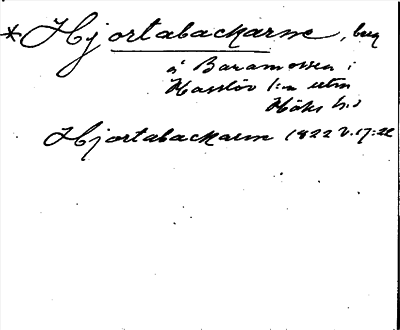 *Hjortabackarne, beg
å Baramossen i
Hasslöv s:n utm
Höks h:d
Hjortabackarne 1822 V. 17:22